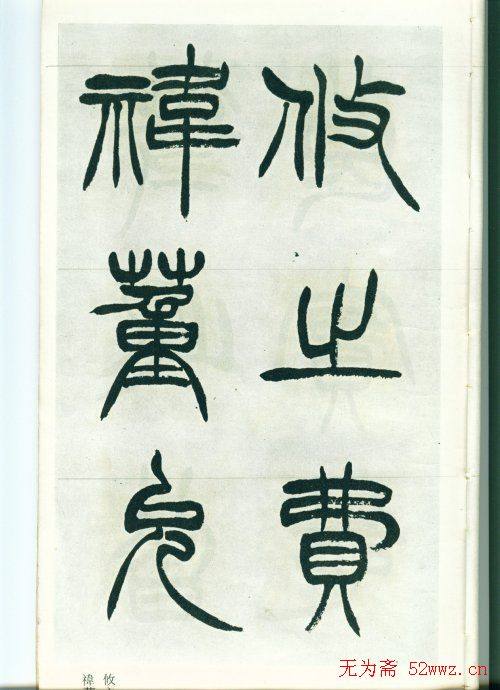 攸之費
禕董允
攸
禕
无为斋 52wwz.cn